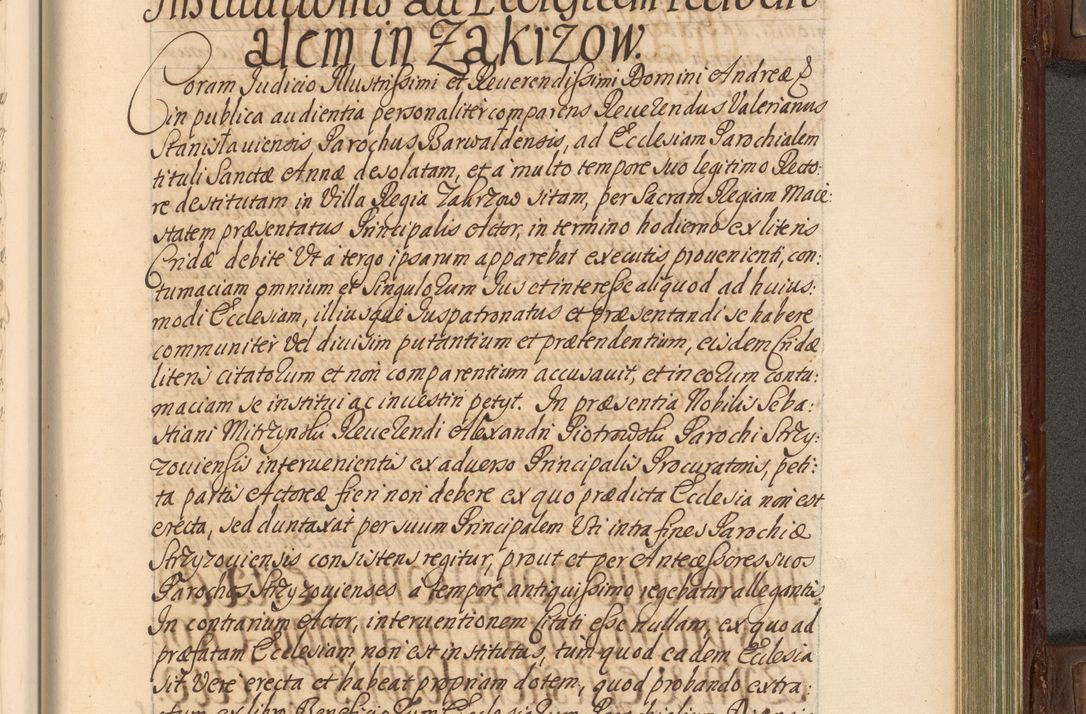 Institutionis ad Ecclesiam Parochi
alem in Zakrzow.
Coram Judicio Illustrissimi et Reverendissimi Domini Andreæ &
in publica audientia personaliter comparens Reuerendus Valerianus
Stanisłauiensis Parochus Barwałdensis, ad Ecclesiam Parochialem
tituli Sanctæ Annæ desolatam, et a multo tempore suo legitimo Recto:
re destitutam in Villa Regia Zakrzow sitam, per Sacram Regiam Maie:
statem præsentatus Principalis Actor, in termino hodierno ex literis
Cridæ debite Ut a tergo ipsarum apparebat executis prouenienti, con:
tumaciam omnium et Singulorum Jus et interesse aliquod ad huius:
modi Ecclesiam, illiusque Juspatronatus et præsentandi se habere
communiter vel diuisim putantium et prætendentium, eisdem Cridæ
literis citatorum et non comparentium accusauit, et in eorum contu:
maciam se institui ac inuestiri petyt. In præsentia Nobilis Seba:
stiani Mitrzynski Reuerendi Alexandri Piotrowski Parochi Strzy:
zouiensis interuenientis ex aduerso Principalis Procuratoris, peti:
ta partis Actoreæ fieri non debere ex quo prædicta Ecclesia non est
erecta, sed duntaxat per suum Principalem Uti intra fines Parochiæ
Strzyzouiensis consistens regitur, prout et per Antecessores suos
Parochos Strzyzouienses a tempore antiquissimo regebatur allegantis.
In contrarium Actor, interuentionem Citati esse nullam, ex quo ad
præfatam Ecclesiam non est institutus, tum quod eadem Ecclesia
sit Vere erecta et habeat propriam dotem, quod probando extra:
ctum ex libro Beneficiorum Ecclesiarum Parochialium